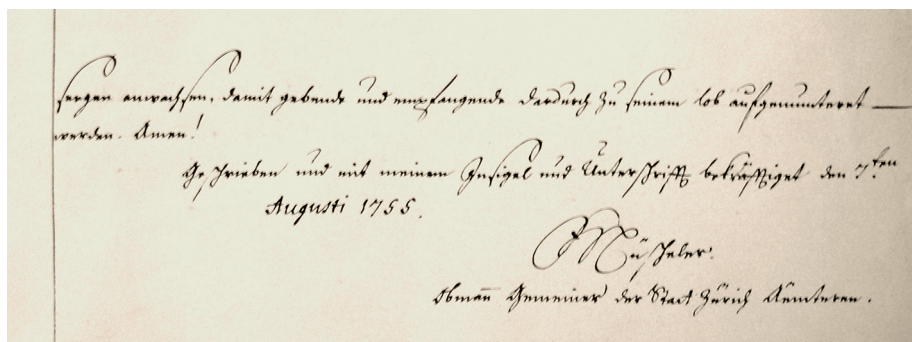 sergen anwachsen, damit gebende und empfangende dardurch zu seinem lob aufgemunteret
werden. Amen!
Geschrieben und mit meinem Insigel und Unterschrifft bekräfftiget den 7.ten
Augusti 1755.
Müscheler.
Obmann Gemeiner der Statt Zürich Aemteren.